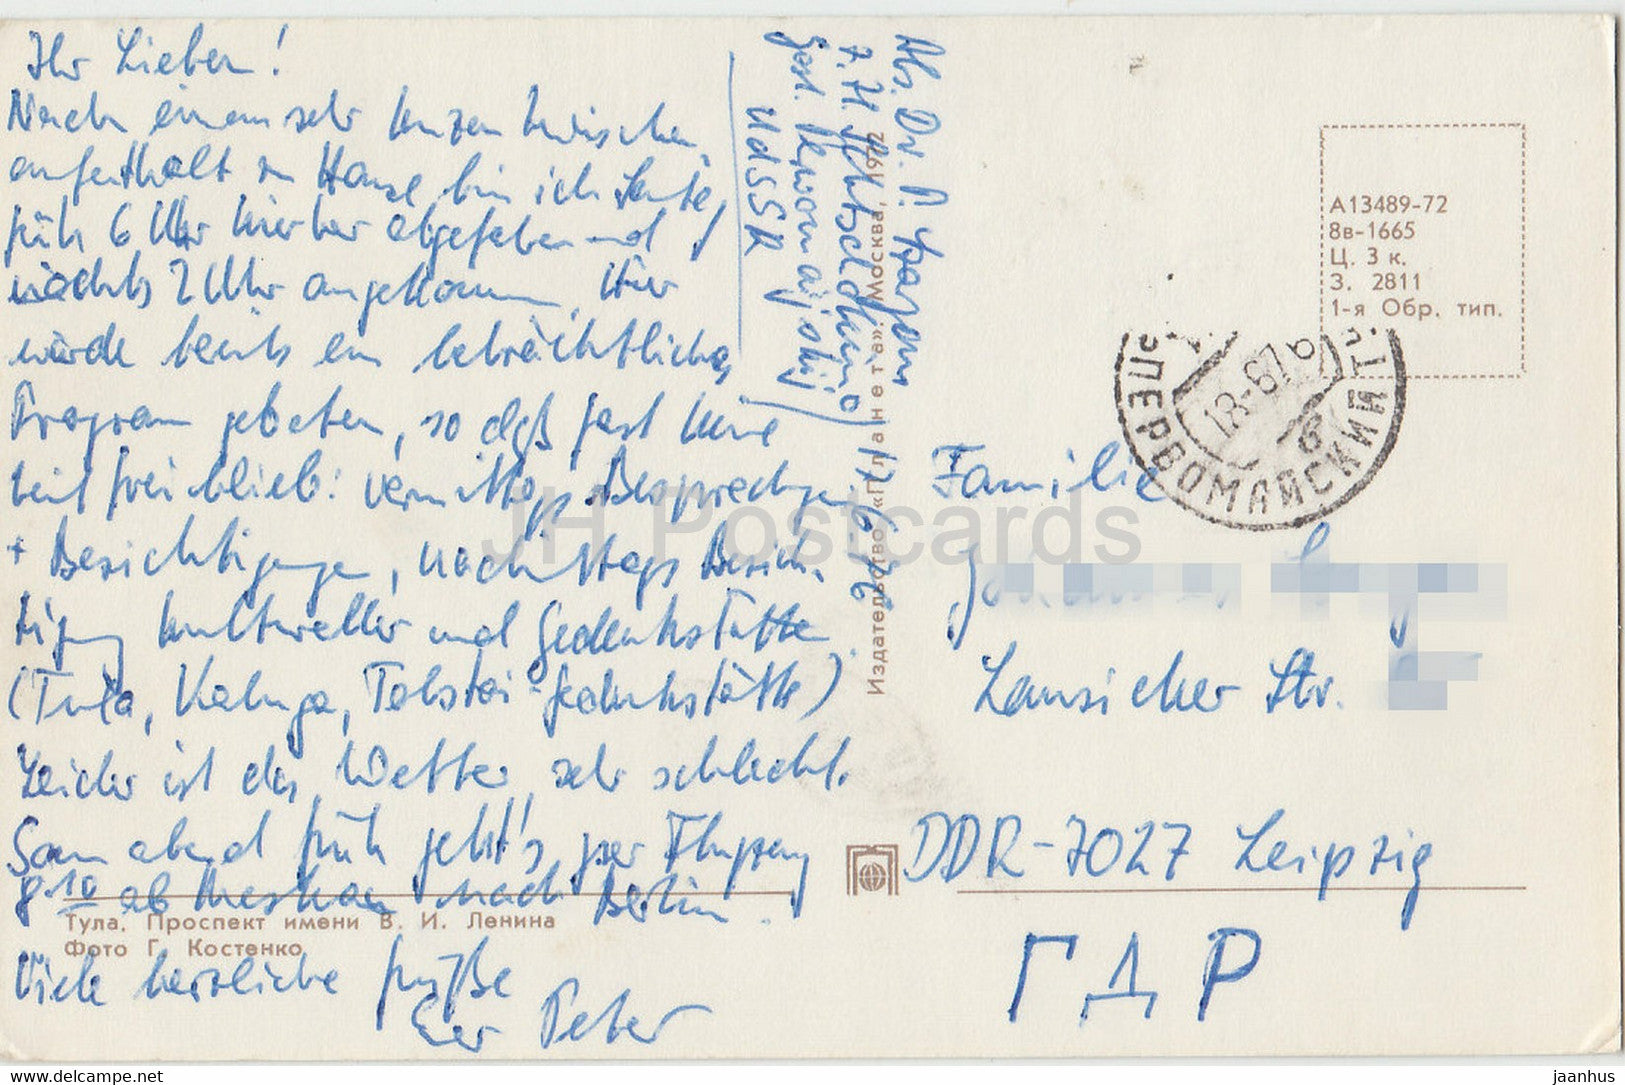 Ihr Lieben!
Nach einem sehr kurzen Zwischen-
aufenthalt zu Hause bin ich heute
früh 6 Uhr hierher abgefahren und
nachts 2 Uhr angekommen. Hier
wurde bereits ein beträchtliches
Program geboten, so daß fast keine
Zeit frei blieb: vormittags Besprechungen
+ Besichtigungen, nachmittags Besich-
tigung kultureller und Gedenkstätten
(Tula, Kaluga, Tolstoi-Gedenkstätte)
Leider ist das Wetter sehr schlecht.
Sonnabend früh geht's per Flugzeug
8.10 ab Moskau nach Berlin.
Viele herzliche Grüße
Euer Peter
Abs. Dr. P.
UdSSR
17.6.76
Издательство «Планета». Москва, 1972
Тула. Проспект имени В. И. Ленина
Фото Г. Костенко
А13489-72
8в-1665
Ц. 3 к.
З. 2811
1-я Обр. тип.
ПЕРВОМАЙСКИЙ
Familie
Lausicker Str.
DDR-7027 Leipzig
ГДР
JH Postcards
www.delcampe.net
jaanhus